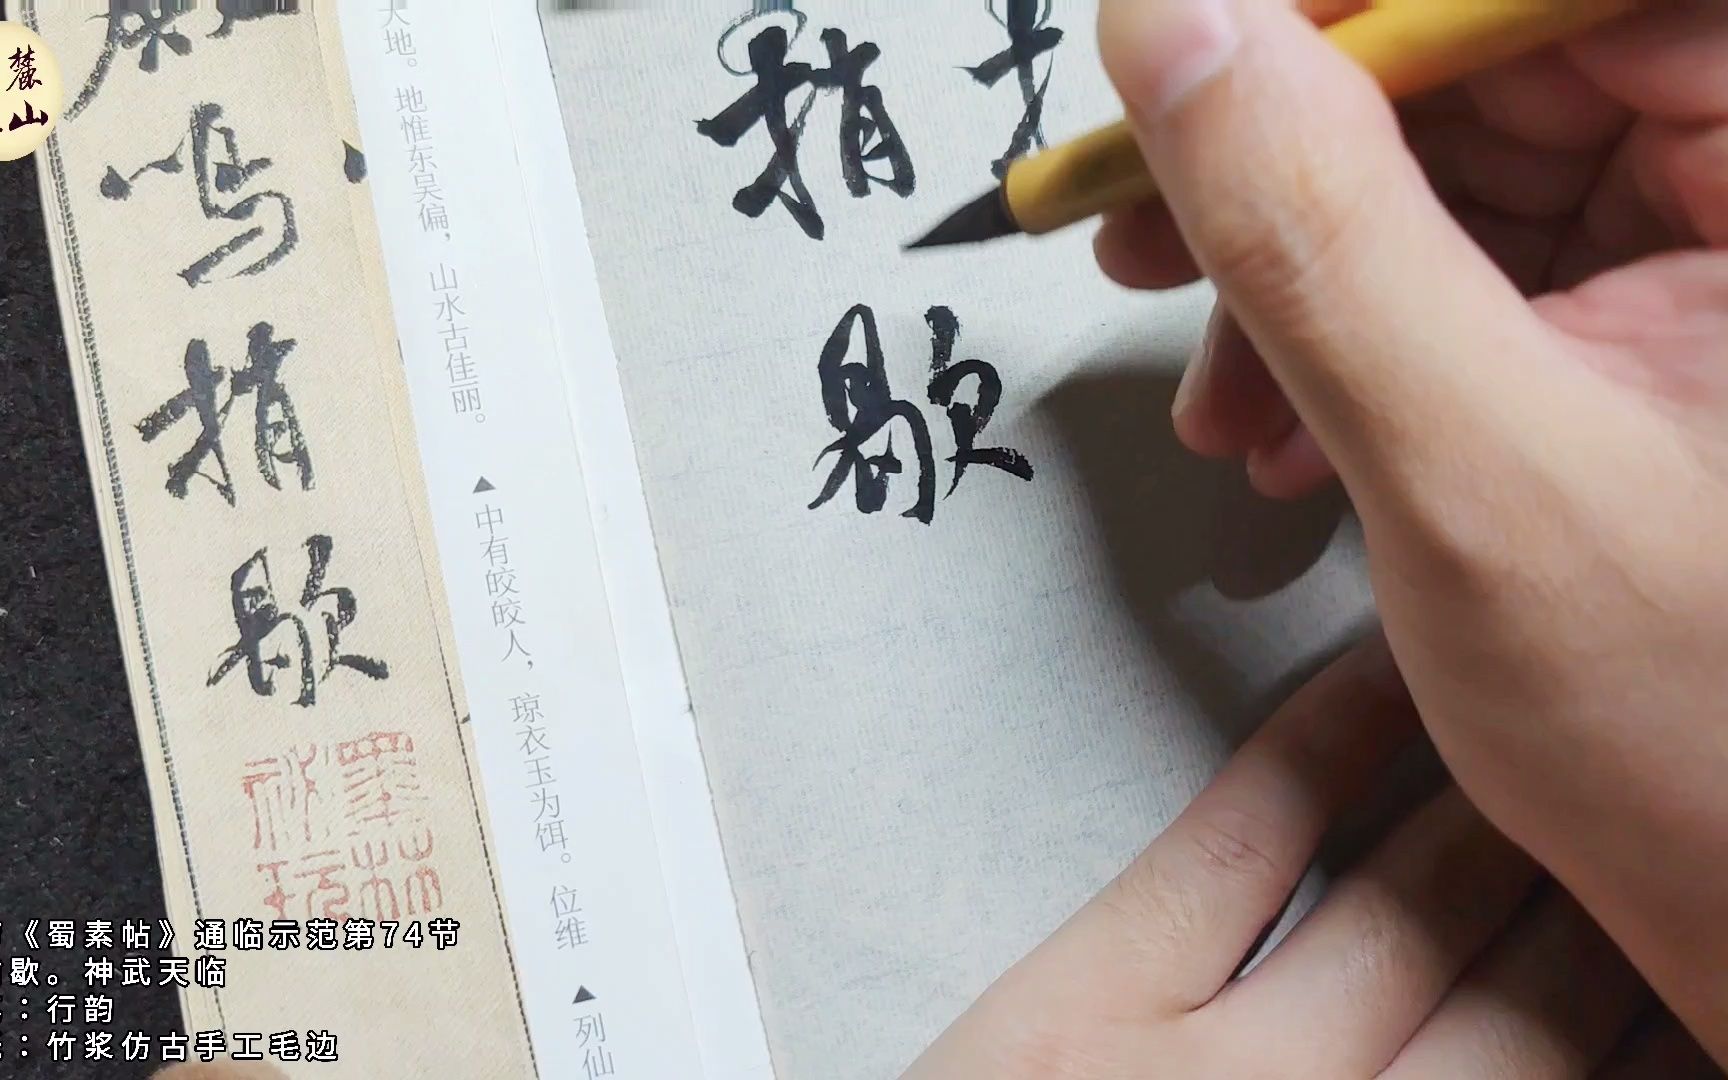 麓
山
鸣
捎
歇
天地。地惟东吴偏，山水古佳丽。
▲中有皎皎人，琼衣玉为饵。位维
▲列仙
捎
歇
墨林
秘玩
《蜀素帖》通临示范第74节
歇。神武天临
：行韵
：竹浆仿古手工毛边